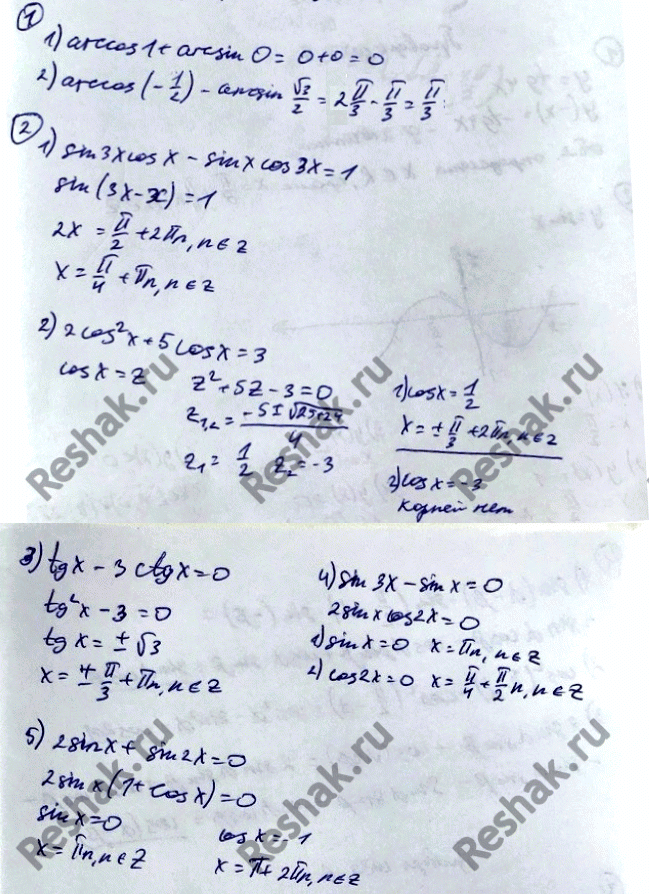 1
1) arccos 1 + arcsin 0 = 0 + 0 = 0
2) arccos (-1/2) - arcsin √3/2 = 2π/3 - π/3 = π/3
2
1) sin 3x cos x - sin x cos 3x = 1
sin (3x - x) = 1
2x = π/2 + 2πn, n ∈ Z
x = π/4 + πn, n ∈ Z
2) 2cos²x + 5cos x = 3
cos x = z
z² + 5z - 3 = 0
z₁,₂ = (-5 ± √25+24)/4
z₁ = 1/2 z₂ = -3
1) cos x = 1/2
x = ± π/3 + 2πn, n ∈ Z
2) cos x = -3
корней нет
3) tg x - 3 ctg x = 0
tg²x - 3 = 0
tg x = ± √3
x = ± π/3 + πn, n ∈ Z
4) sin 3x - sin x = 0
2 sin x cos 2x = 0
1) sin x = 0 x = πn, n ∈ Z
2) cos 2x = 0 x = π/4 + π/2 n, n ∈ Z
5) 2 sin x + sin 2x = 0
2 sin x (1 + cos x) = 0
sin x = 0
x = πn, n ∈ Z
cos x = -1
x = π + 2πn, n ∈ Z
Reshak.ru
Reshak.ru
Reshak.ru
Reshak.ru
Reshak.ru
Reshak.ru